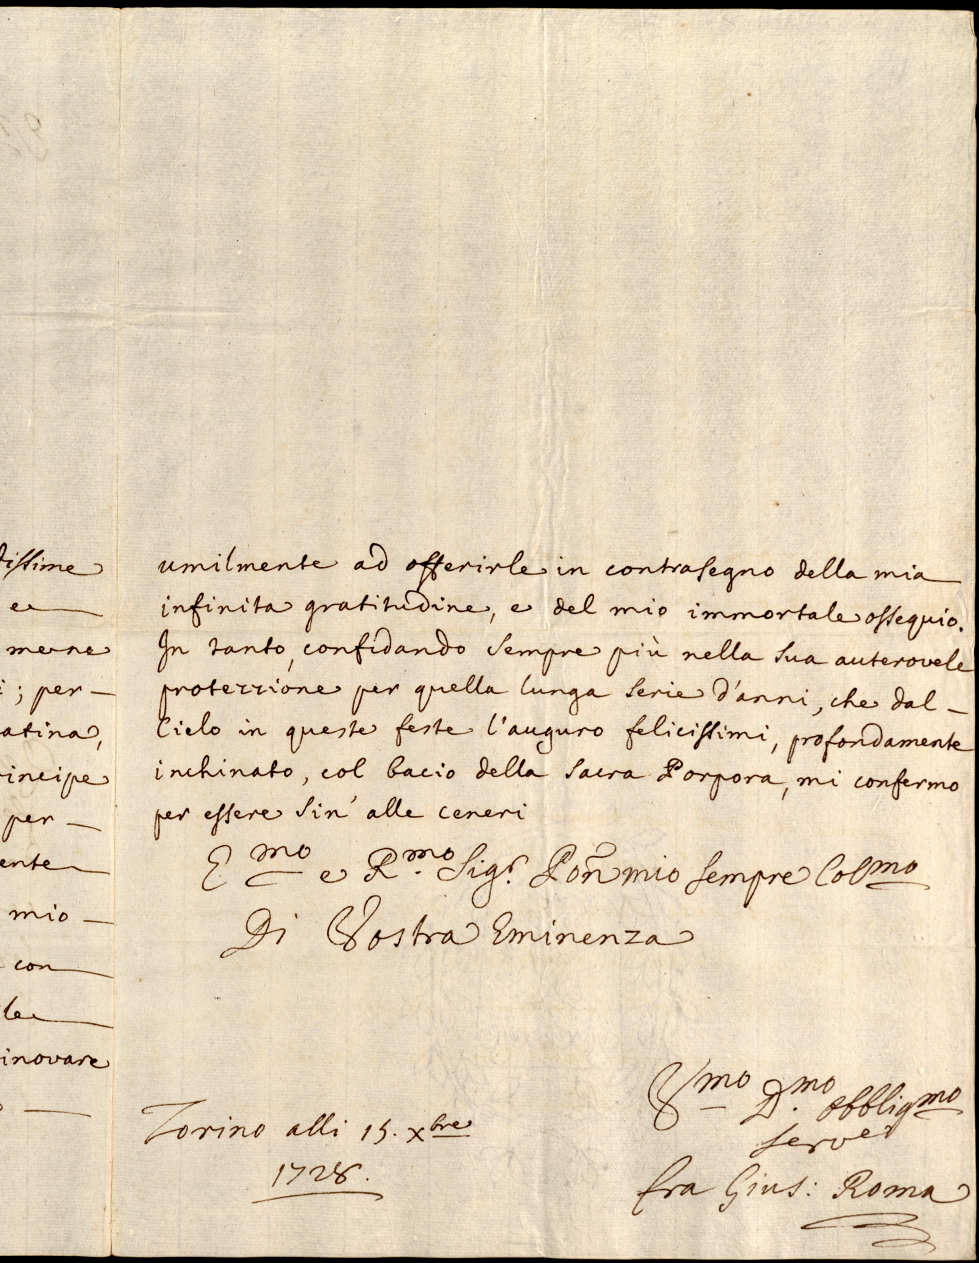 tissime
e
merne
i; per-
atina,
incipe
per-
ente
mio-
con
le
inovare
umilmente ad offerirle in contrasegno della mia
infinita gratitudine, e del mio immortale ossequio.
In tanto, confidando sempre più nella sua auterovele
protezzione per quella lunga serie d'anni, che dal-
Cielo in queste feste l'auguro felicissimi, profondamente
inchinato, col bacio della Sacra Porpora, mi confermo
per essere sin' alle ceneri
E.mo e R.mo Sig.r Pōn mio sempre Colmo
Di Vostra Eminenza
Torino alli 15. Xbre
1728.
Vmo D.mo obbligmo
serve
fra Gius: Roma